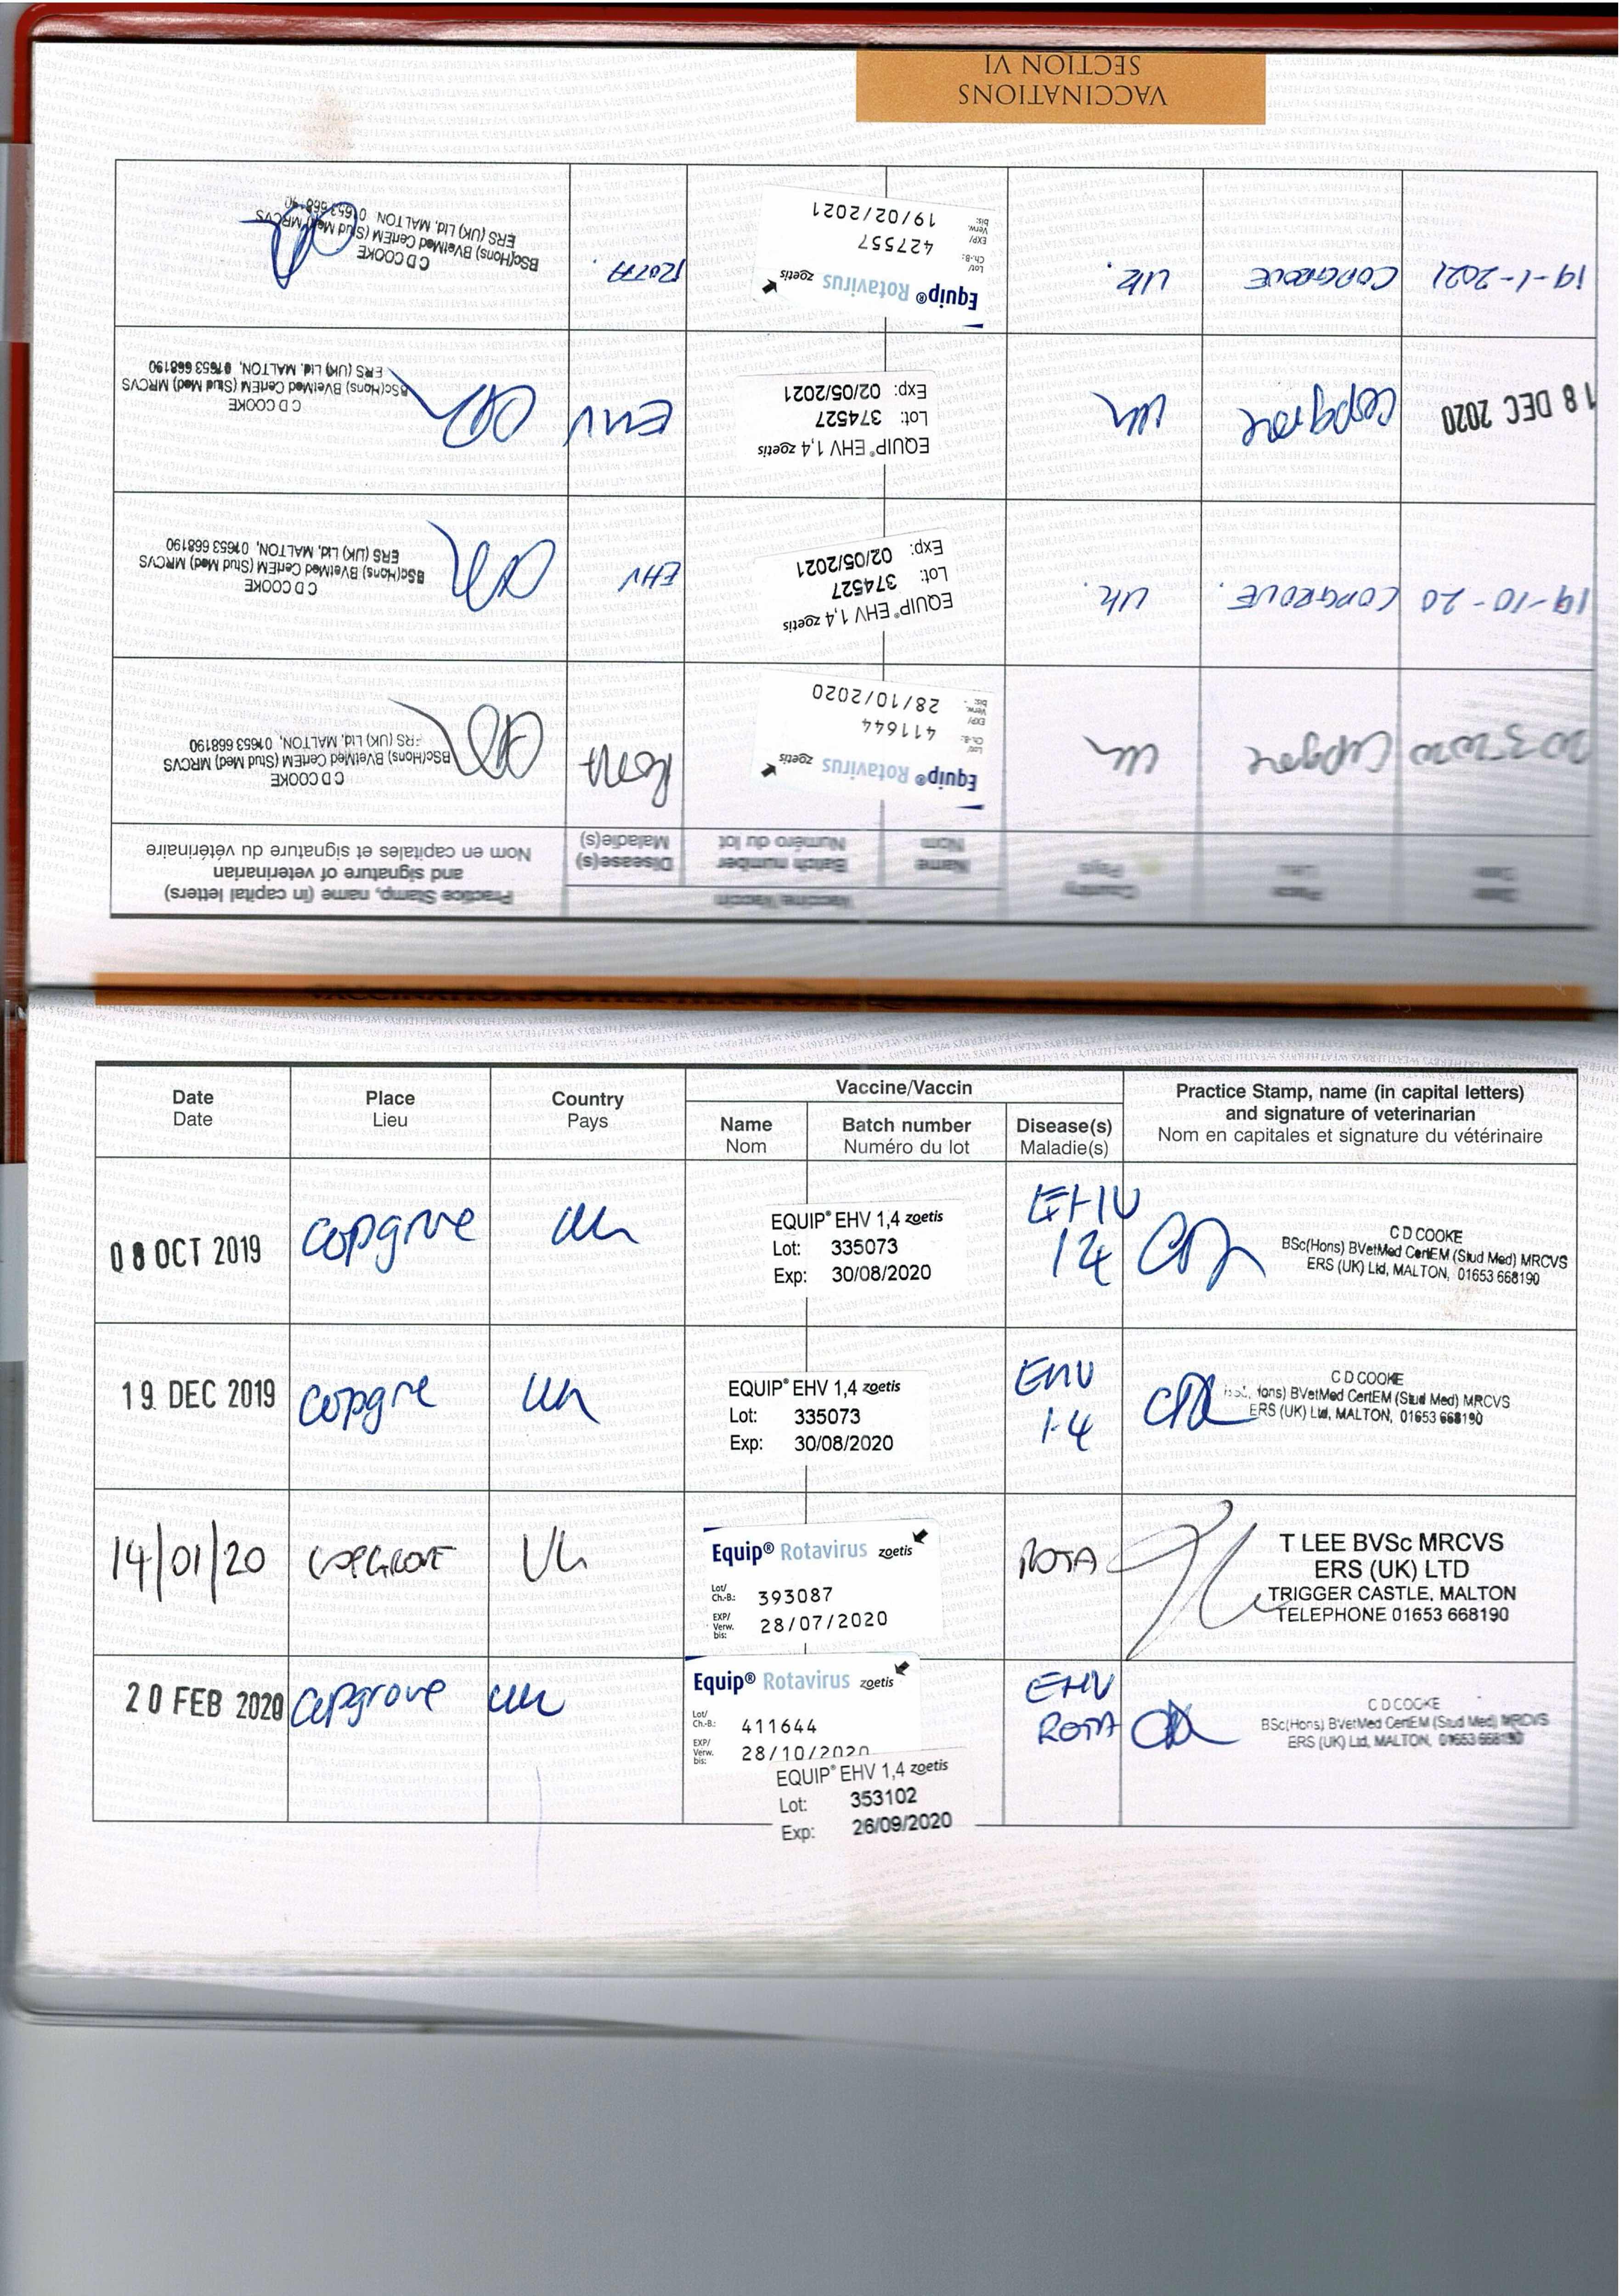 VACCINATIONS
SECTION VI
Date
Date
Place
Lieu
Country
Pays
Vaccine/Vaccin
Name
Nom
Batch number
Numéro du lot
Disease(s)
Maladie(s)
Practice Stamp, name (in capital letters)
and signature of veterinarian
Nom en capitales et signature du vétérinaire
20 3 2020
Copgrove
UK
Equip® Rotavirus zoetis
Lot/
Ch.-B.:
411644
EXP/
Verw.
bis:
28/10/2020
Rota
C D COOKE
BSc(Hons) BVetMed CertEM (Stud Med) MRCVS
ERS (UK) Ltd, MALTON, 01653 668190
19-10-20
COPGROVE.
UK.
EQUIP® EHV 1,4 zoetis
Lot: 374527
Exp: 02/05/2021
EHV
C D COOKE
BSc(Hons) BVetMed CertEM (Stud Med) MRCVS
ERS (UK) Ltd, MALTON, 01653 668190
18 DEC 2020
Copgrove
UK
EQUIP® EHV 1,4 zoetis
Lot: 374527
Exp: 02/05/2021
EHV
C D COOKE
BSc(Hons) BVetMed CertEM (Stud Med) MRCVS
ERS (UK) Ltd, MALTON, 01653 668190
19-1-2021
COPGROVE
UK.
Equip® Rotavirus zoetis
Lot/
Ch.-B.:
427557
EXP/
Verw.
bis:
19/02/2021
ROTA.
C D COOKE
BSc(Hons) BVetMed CertEM (Stud Med) MRCVS
ERS (UK) Ltd, MALTON, 01653 668190
Date
Date
Place
Lieu
Country
Pays
Vaccine/Vaccin
Name
Nom
Batch number
Numéro du lot
Disease(s)
Maladie(s)
Practice Stamp, name (in capital letters)
and signature of veterinarian
Nom en capitales et signature du vétérinaire
08 OCT 2019
Copgrove
UK
EQUIP® EHV 1,4 zoetis
Lot: 335073
Exp: 30/08/2020
EHV
14
C D COOKE
BSc(Hons) BVetMed CertEM (Stud Med) MRCVS
ERS (UK) Ltd, MALTON, 01653 668190
19 DEC 2019
Copgrove
UK
EQUIP® EHV 1,4 zoetis
Lot: 335073
Exp: 30/08/2020
EHV
1.4
C D COOKE
BSc(Hons) BVetMed CertEM (Stud Med) MRCVS
ERS (UK) Ltd, MALTON, 01653 668190
14/01/20
COPGROVE
UK
Equip® Rotavirus zoetis
Lot/
Ch.-B.:
393087
EXP/
Verw.
bis:
28/07/2020
ROTA
T LEE BVSc MRCVS
ERS (UK) LTD
TRIGGER CASTLE, MALTON
TELEPHONE 01653 668190
20 FEB 2020
Copgrove
UK
Equip® Rotavirus zoetis
Lot/
Ch.-B.:
411644
EXP/
Verw.
bis:
28/10/2020
EQUIP® EHV 1,4 zoetis
Lot: 353102
Exp: 26/09/2020
EHV
ROTA
C D COOKE
BSc(Hons) BVetMed CertEM (Stud Med) MRCVS
ERS (UK) Ltd, MALTON, 01653 668190